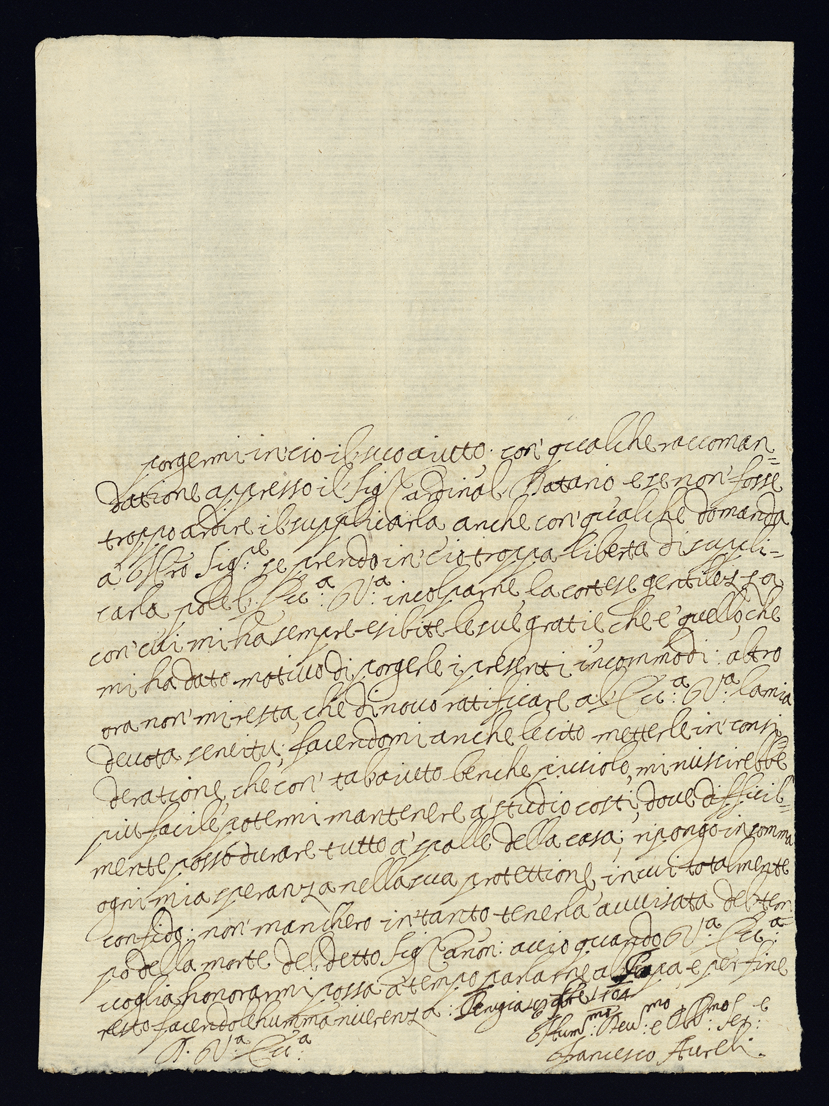 porgermi in ciò il suo aiuto con qualche raccoman=
datione appresso il Sig.r Cardinal Datario e se non fosse
troppo ardire il supplicarla anche con qualche domanda
a Nſtro Sig.re se prendo in ciò troppa libertà di suppli=
carla pole l'Ecc.a V.a incolparne la cortese gentilezza
con cui mi ha sempre esibite le sue gratie che è quello che
mi ha dato motivo di porgerle i presenti incommodi: altro
ora non mi resta, che di novo ratificare a l'Ecc.a V.a la mia
devota servitù, facendomi anche lecito metterle in consi
deratione, che con tal aiuto benche picciolo, mi riuscirebbe
più facile potermi mantenere a studio costì, dove difficil=
mente posso durare tutto a spalle della casa; ripongo in somma
ogni mia speranza nella sua protettione in cui totalmente
confido: non mancherò in tanto tenerla avvisata del tem
po della morte del detto Sig.r Canon: acciò quando V.a Ecc.a
voglia honorarmi possa a tempo parlarne al Papa e per fine
resto facendole humma riverenza: Perugia 1704
D. V.a Ecc.a
Hum.mo Dev.mo e Obl.mo Ser:
Francesco Aureli.